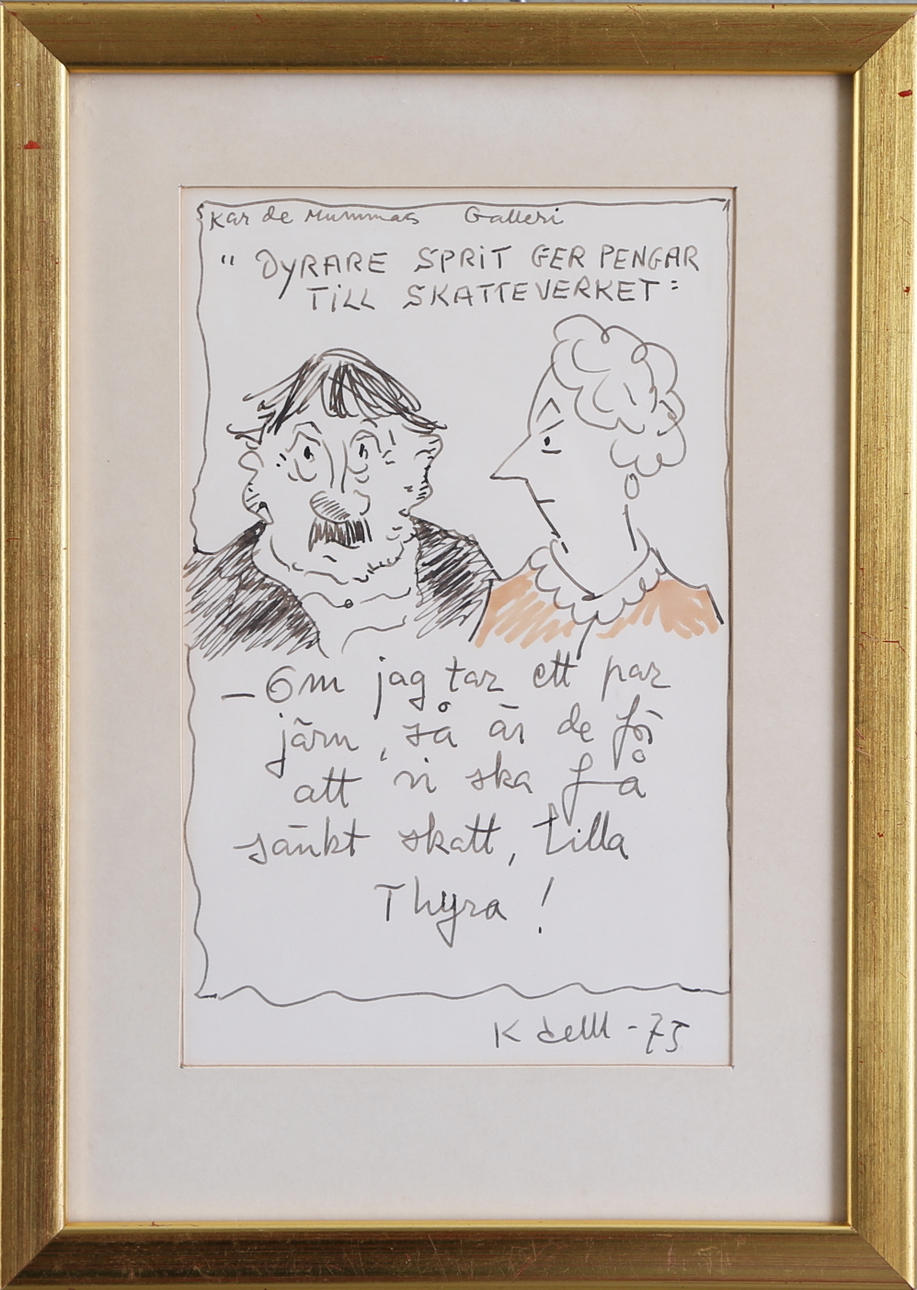 Kar de Mummas Galleri
" DYRARE SPRIT GER PENGAR
TILL SKATTEVERKET :
– Om jag tar ett par
järn, så är de för
att vi ska få
sänkt skatt, lilla
Thyra !
K de M - 75